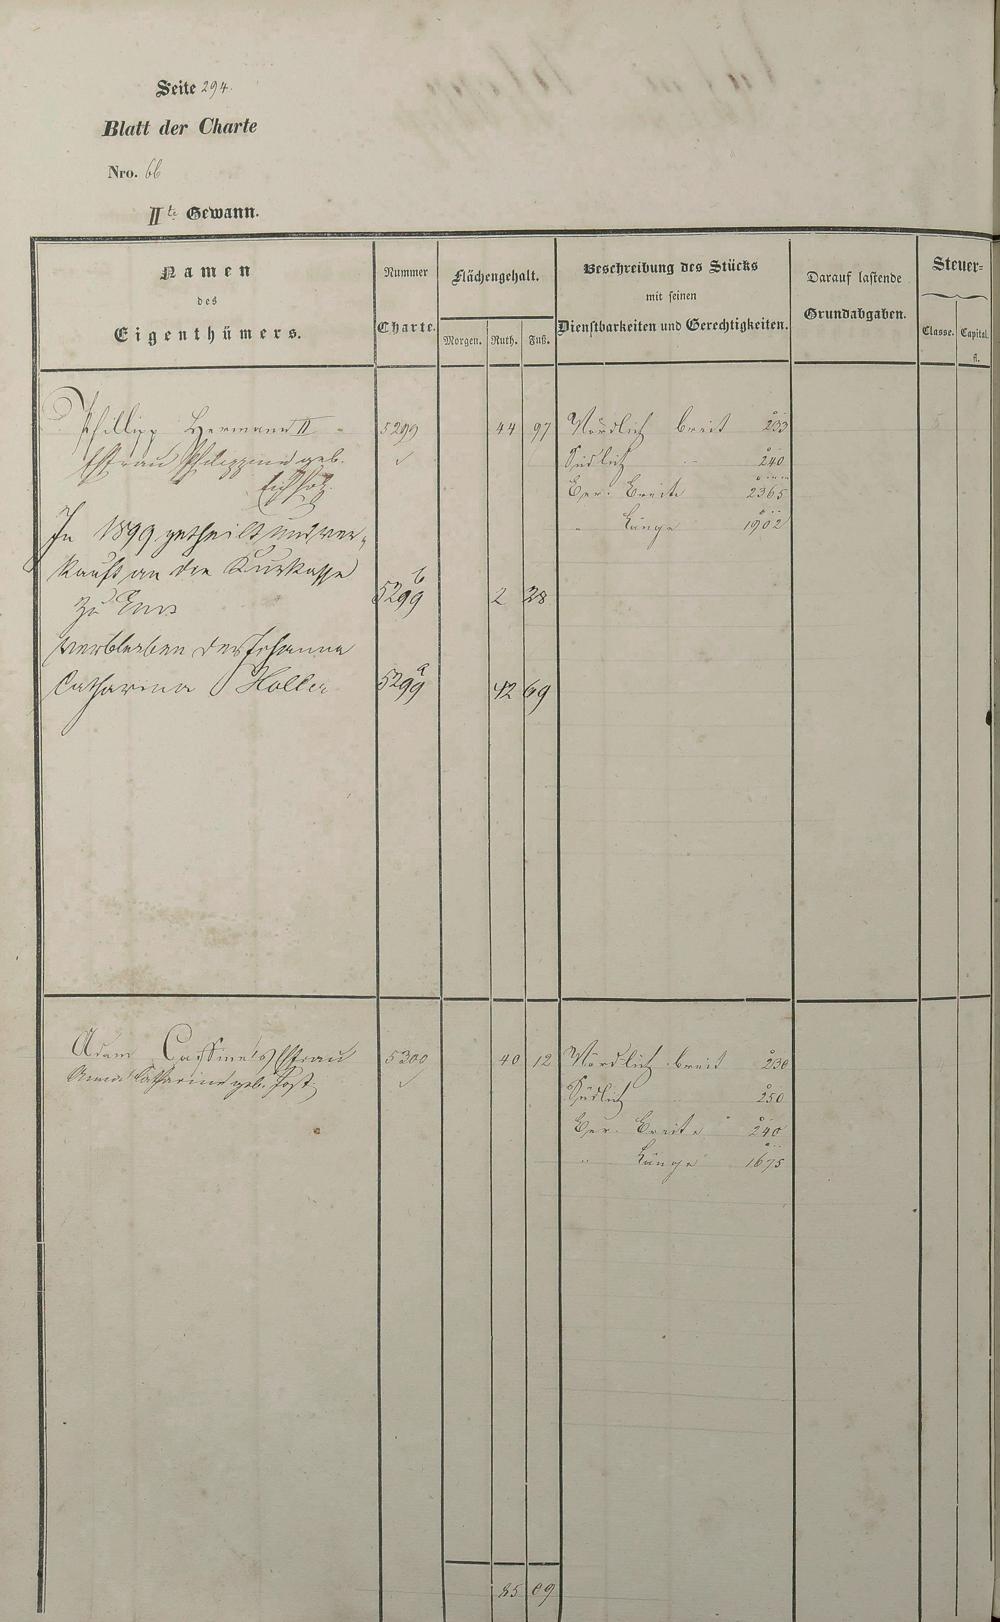 Seite 294.
Blatt der Charte
Nro. 66
IIte Gewann.
Namen
des
Eigenthümers.
Nummer
Charte.
Flächengehalt.
Morgen. Ruth. Fuß.
Beschreibung des Stücks
mit seinen
Dienstbarkeiten und Gerechtigkeiten.
Darauf lastende
Grundabgaben.
Steuer=
Classe. Capital.
fl.
Phillipp Hermann II 5299 44 97 Nördlich breit 233
Ehefrau Philippine geb. Südlich 240
Ber. Breite 2365
" Länge 1902
In 1899 getheilt und ver-
kauft an die Kurkasse
zu Ems 5299 b 2 28
verbleiben der Johanna
Catharina Holler 5299 a 42 69
Adam Ehefrau 5300 40 12 Nördlich breit 230
Anna Catharine geb. Post Südlich 250
Ber. Breite 240
" Länge 1675
85 09